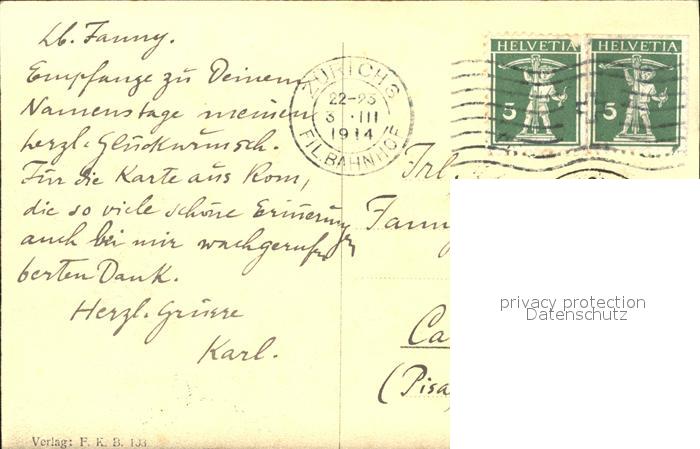 Lb. Fanny.
Empfange zu Deinem
Namenstage meinen
herzl. Glückwunsch.
Für die Karte aus Rom,
die so viele schöne Erinnerungen
auch bei mir wachgerufen
besten Dank.
Herzl. Grüsse
Karl.
Verlag: F. K. B. 103
ZÜRICH 8
22-23
3 . III
1914
FIL. BAHNHOF
HELVETIA
5
HELVETIA
5
Frl.
Fanny
(Pisa
privacy protection
Datenschutz